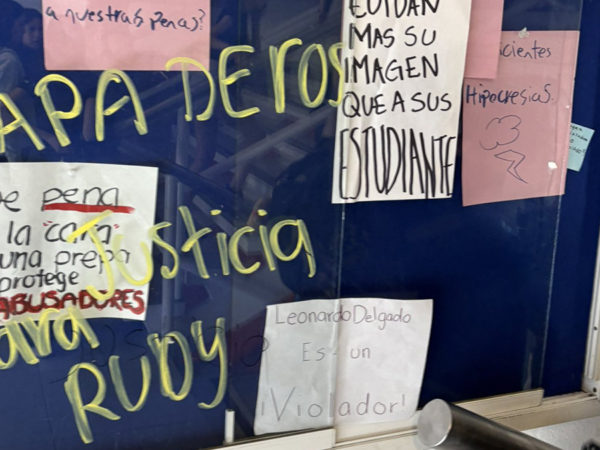 a nuestra(s pena)s?
CUIDAN
MAS SU
IMAGEN
QUE A SUS
ESTUDIANTE
cientes
Hipocresias.
APA DEROS
e pena
la "cara"
una prepa
protege
ABUSADORES
Justicia
ara
RUDY
Leonardo Delgado
Es un
¡Violador!